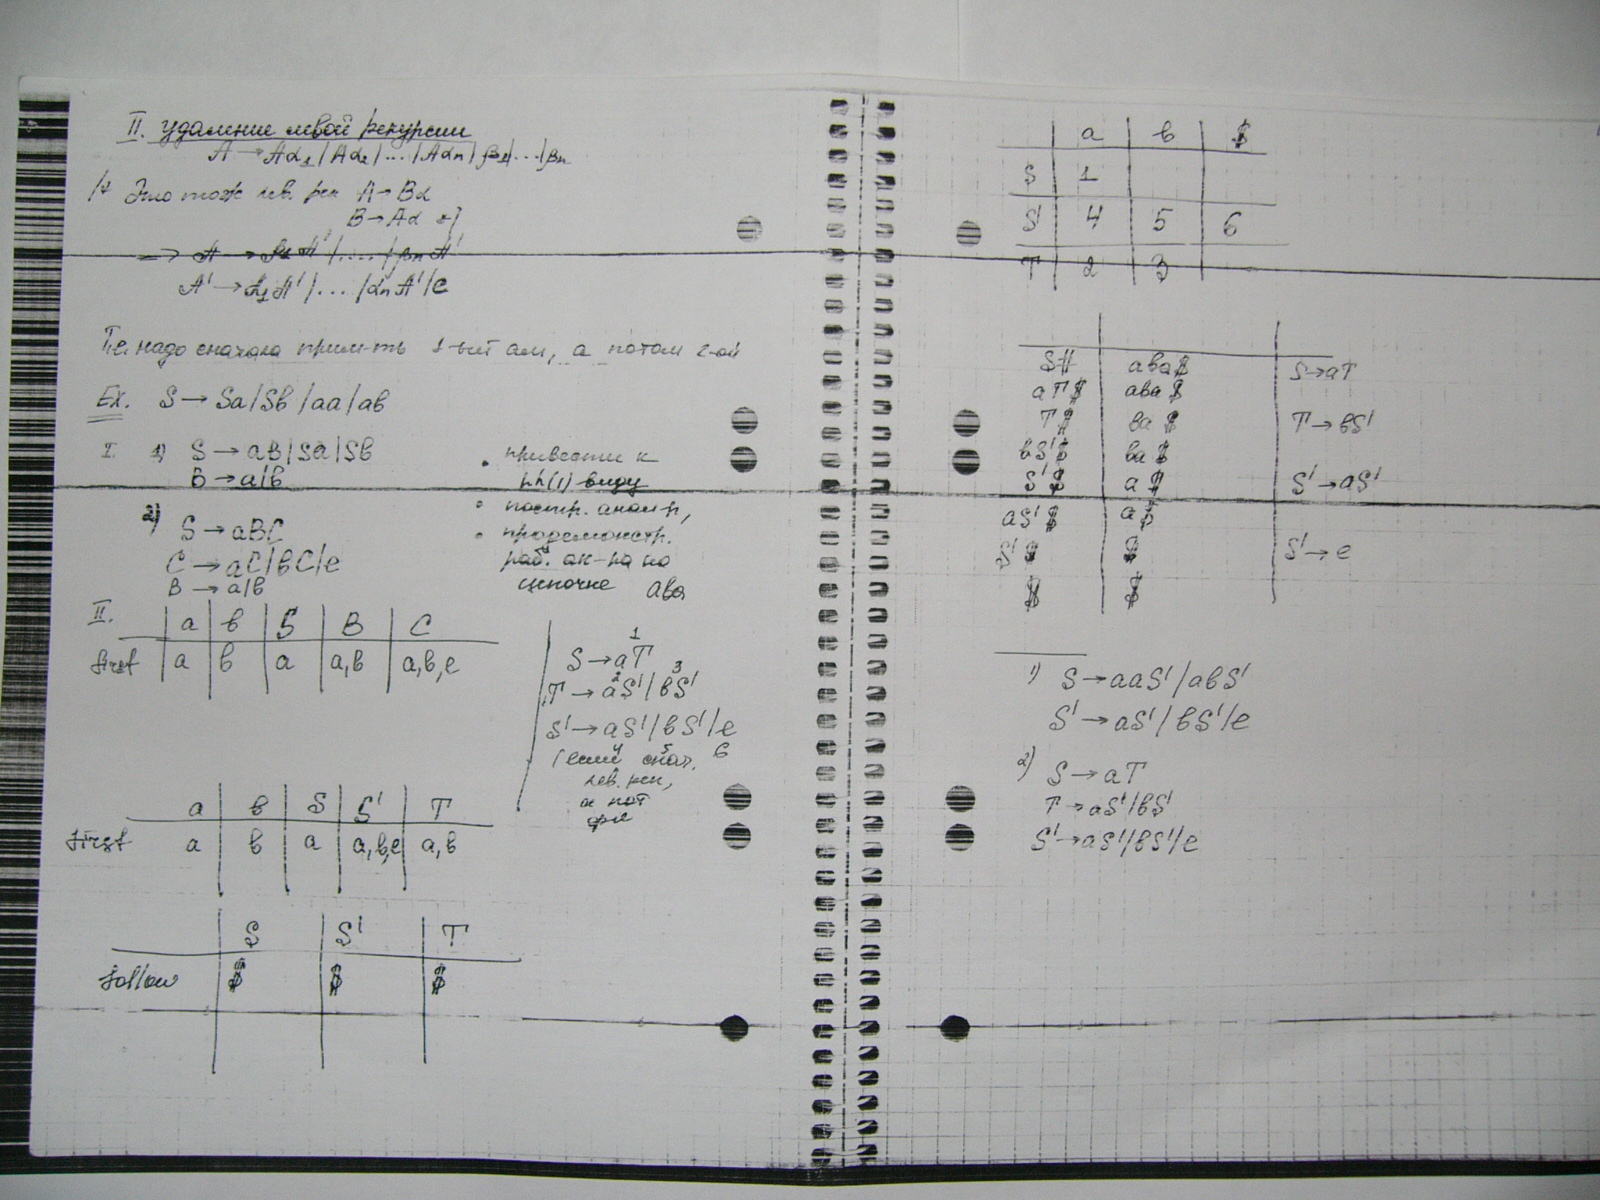 II. Удаление левой рекурсии
A → Aα₁ | Aα₂ | ... | Aαn | β₁ | ... | βn
/* Это тож лев. рек A → Bα
B → Aα */
=> A → β₁A' | .... | βnA'
A' → α₁A' | ... | αnA' | e
Т.е. надо сначала прим-ть 1-ый алг, а потом 2-ой
Ex. S → Sa | Sb | aa | ab
I. 1) S → aB | Sa | Sb
B → a | b
2) S → aBC
C → aC | bC | e
B → a | b
• привести к
LL(1) виду
• постр. анал-р,
• продемонстр.
раб. ан-ра на
цепочке aba
II. a b S B C
first a b a a,b a,b,e
1
S → aT
2 3
T → aS' | bS'
S' → aS' | bS' | e
4 5 6
(если снач.
лев. рек,
а пот
a b S S' T
first a b a a,b,e a,b
S S' T
follow $ $ $
a b $
S 1
S' 4 5 6
T 2 3
S# aba$ S → aT
aT$ aba$
T$ ba$ T → bS'
bS'$ ba$
S'$ a$ S' → aS'
aS'$ a$
S'$ $ S' → e
$ $
1) S → aaS' | abS'
S' → aS' | bS' | e
2) S → aT
T → aS' | bS'
S' → aS' | bS' | e